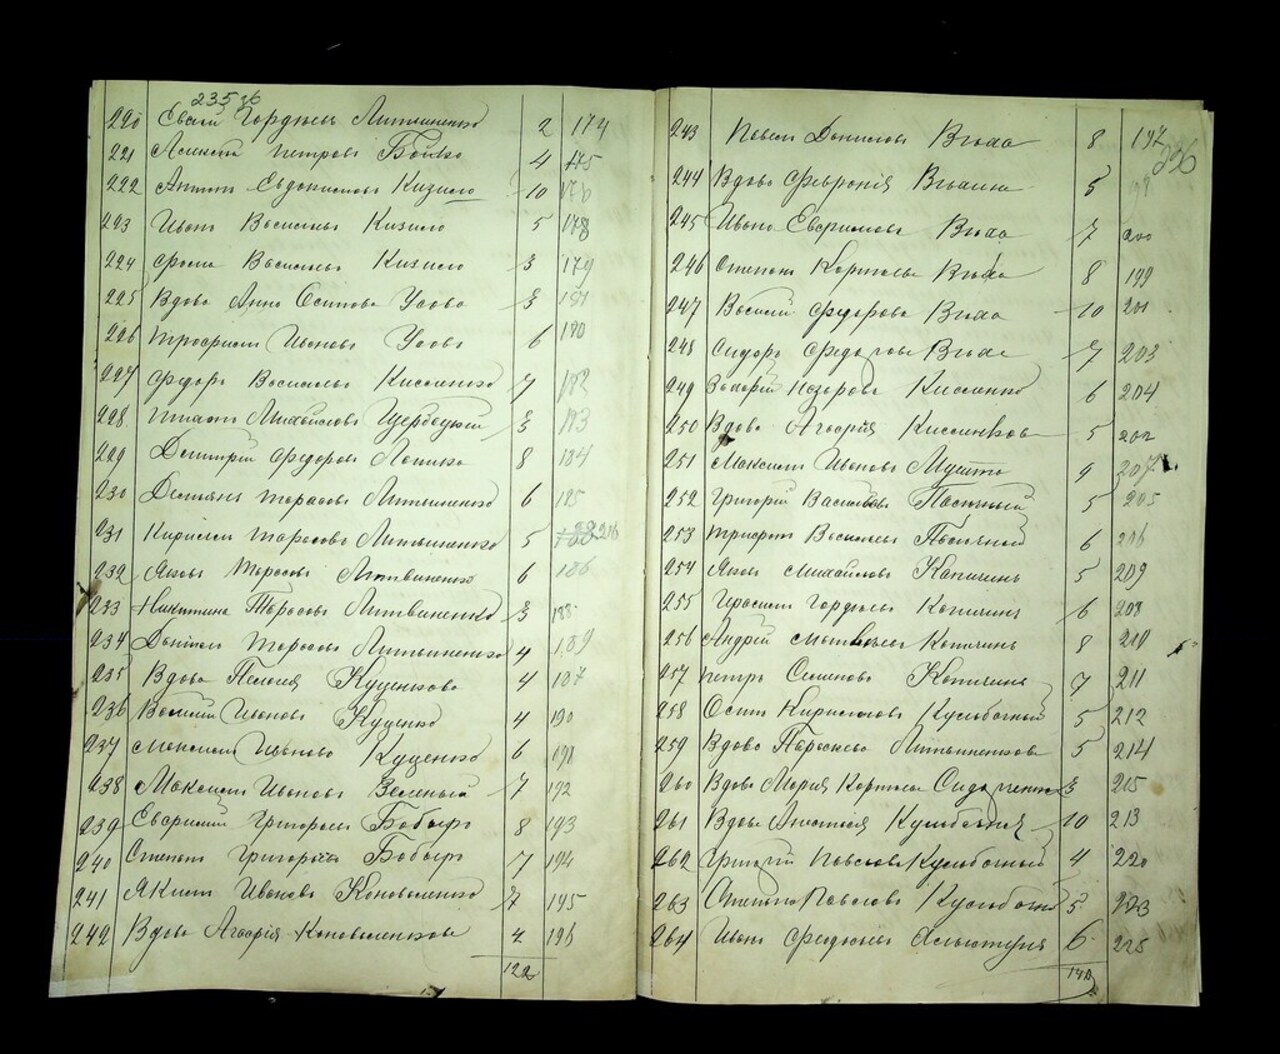 235 зб
220 Евсей Гордеевъ Литвиненко 2 174
221 Алексей Петровъ Бойко 4 175
222 Антонъ Евдокимовъ Кизило 10 176
223 Иванъ Васильевъ Кизило 5 178
224 Фома Васильевъ Кизило 3 179
225 Вдова Анна Осипова Усова 3 181
226 Трофимъ Ивановъ Усовъ 6 180
227 Федоръ Васильевъ Кисленко 7 182
228 Игнатъ Михайловъ Щербацкий 3 183
229 Дмитрій Федоровъ Лопика 8 184
230 Демьянъ Тарасовъ Литвиненко 6 185
231 Кириллъ Тарасовъ Литвиненко 5 216
232 Яковъ Тарасовъ Литвиненко 6 186
233 Никитина Тарасовъ Литвиненко 3 188
234 Даніилъ Тарасовъ Литвиненко 4 189
235 Вдова Пелагея Куценкова 4 187
236 Василий Ивановъ Куценко 4 190
237 Максимъ Ивановъ Куценко 6 191
238 Максимъ Ивановъ Зеленый 7 192
239 Григорьевъ Бобырь 8 193
240 Степанъ Григорьевъ Бобырь 7 194
241 Якимъ Ивановъ Коноваленко 7 195
242 Вдова Агафія Коноваленкова 4 196
122
226
243 Павелъ Даниловъ Вьюха 8 197
244 Вдова Февронія 5
245 Иванъ Вьюха 7 200
246 Степанъ Карповъ Вьюха 8 199
247 Василий Федоровъ Вьюха 10 201
248 Сидоръ Федоровъ Вьюха 7 203
249 Захарій Назаровъ Кисленко 6 204
250 Вдова Агафія Кисленкова 5 202
251 Максимъ Ивановъ Мушта 4 207
252 Григорій Васильевъ Пасічный 5 205
253 Трифонъ Васильевъ 6 206
254 Яковъ Михайловъ Капичинъ 5 209
255 Герасимъ Гордеевъ Капичинъ 6 208
256 Андрій Матвеевъ Капичинъ 8 210
257 Петръ Семеновъ Капичинъ 7 211
258 Осипъ Кириловъ Кульбачный 5 212
259 Вдова Параскева Литвиненкова 5 214
260 Вдова Марія Карпова 3 215
261 Вдова Анастасія Кульбачная 10 213
262 Григорій Павловъ Кульбачный 4 220
263 Степанъ Павловъ Кульбачный 5 223
264 Иванъ 6 225